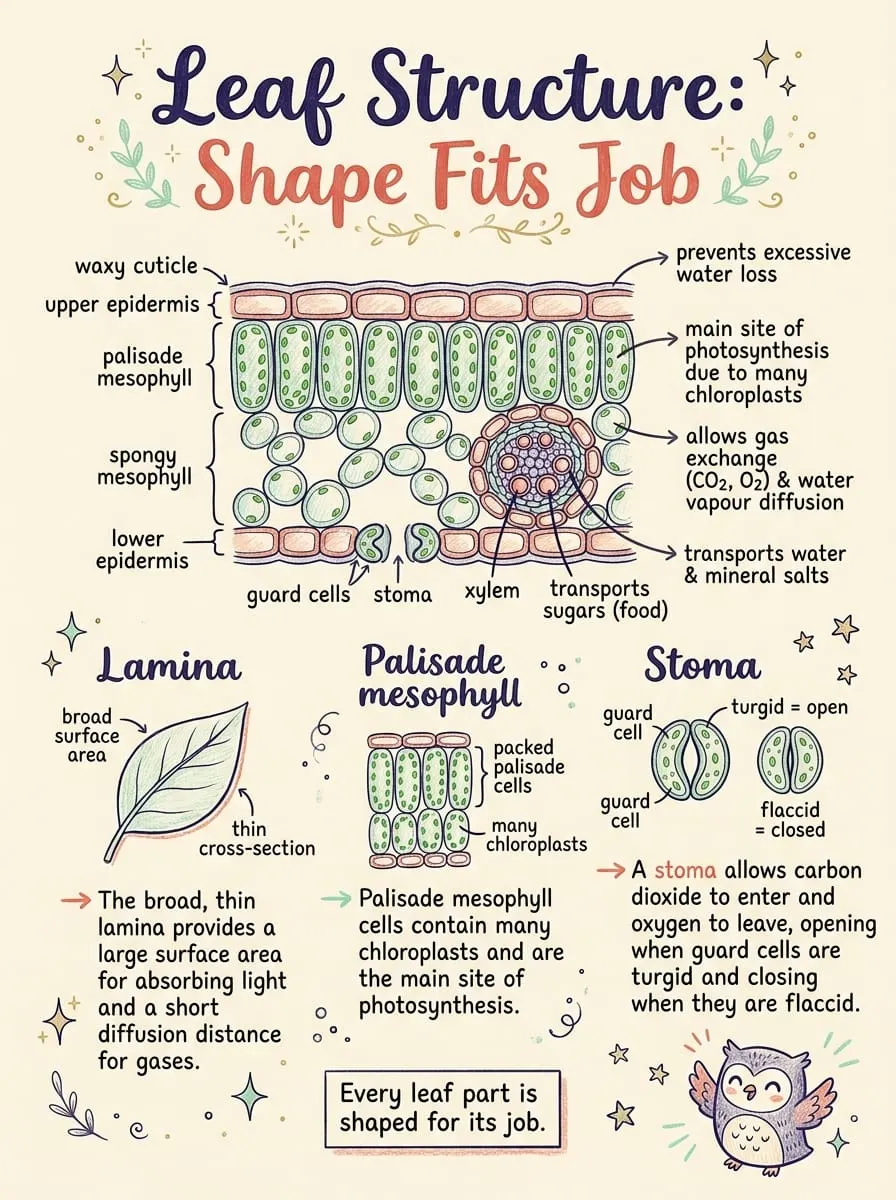 Leaf Structure:
Shape Fits Job
waxy cuticle
upper epidermis
palisade
mesophyll
spongy
mesophyll
lower
epidermis
prevents excessive
water loss
main site of
photosynthesis
due to many
chloroplasts
allows gas
exchange
(CO₂, O₂) & water
vapour diffusion
transports water
& mineral salts
guard cells
stoma
xylem
transports
sugars (food)
Lamina
broad
surface
area
thin
cross-section
The broad, thin
lamina provides a
large surface area
for absorbing light
and a short
diffusion distance
for gases.
Palisade
mesophyll
packed
palisade
cells
many
chloroplasts
Palisade mesophyll
cells contain many
chloroplasts and are
the main site of
photosynthesis.
Stoma
guard
cell
turgid = open
guard
cell
flaccid
= closed
A stoma allows carbon
dioxide to enter and
oxygen to leave, opening
when guard cells are
turgid and closing
when they are flaccid.
Every leaf part is
shaped for its job.